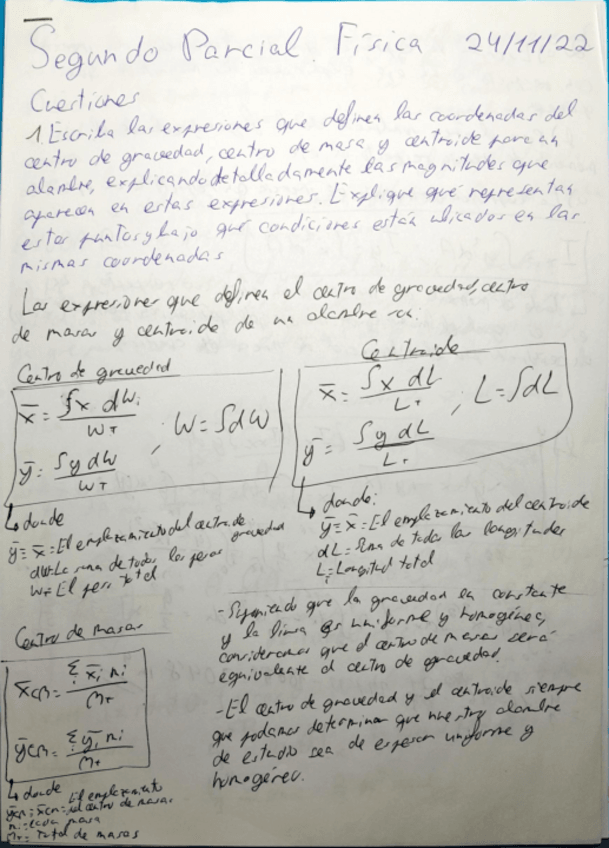 Segundo Parcial. Física 24/11/22
Cuestiones
1. Escriba las expresiones que definen las coordenadas del
centro de gravedad, centro de masa y centroide para un
alambre, explicando detalladamente las magnitudes que
aparecen en estas expresiones. Explique qué representan
estos puntos y bajo qué condiciones están ubicados en las
mismas coordenadas
Las expresiones que definen el centro de gravedad, centro
de masas y centroide de un alambre
Centro de gravedad
x̄ = ∫x dWi / WT
ȳ = ∫y dW / WT
, W = ∫dW
↳ donde
ȳ = x̄ = El emplazamiento del centro de gravedad
dW = La suma de todos los pesos
W = El peso total
Centroide
x̄ = ∫x dL / LT ; L = ∫dL
ȳ = ∫y dL / LT
↳ donde:
ȳ = x̄ = El emplazamiento del centroide
dL = Suma de todas las longitudes
L = Longitud total
Centro de masas
x̄cm = Σ x̄i mi / MT
ȳcm = Σ ȳi mi / MT
↳ donde
ȳcm = x̄cm = El emplazamiento del centro de masas
mi = cada masa
MT = Total de masas
- Suponiendo que la gravedad es constante
y la línea es uniforme y homogénea,
consideramos que el centro de masas será
equivalente al centro de gravedad.
- El centro de gravedad y el centroide siempre
que podamos determinar que nuestro alambre
de estudio sea de espesor uniforme y
homogéneo.